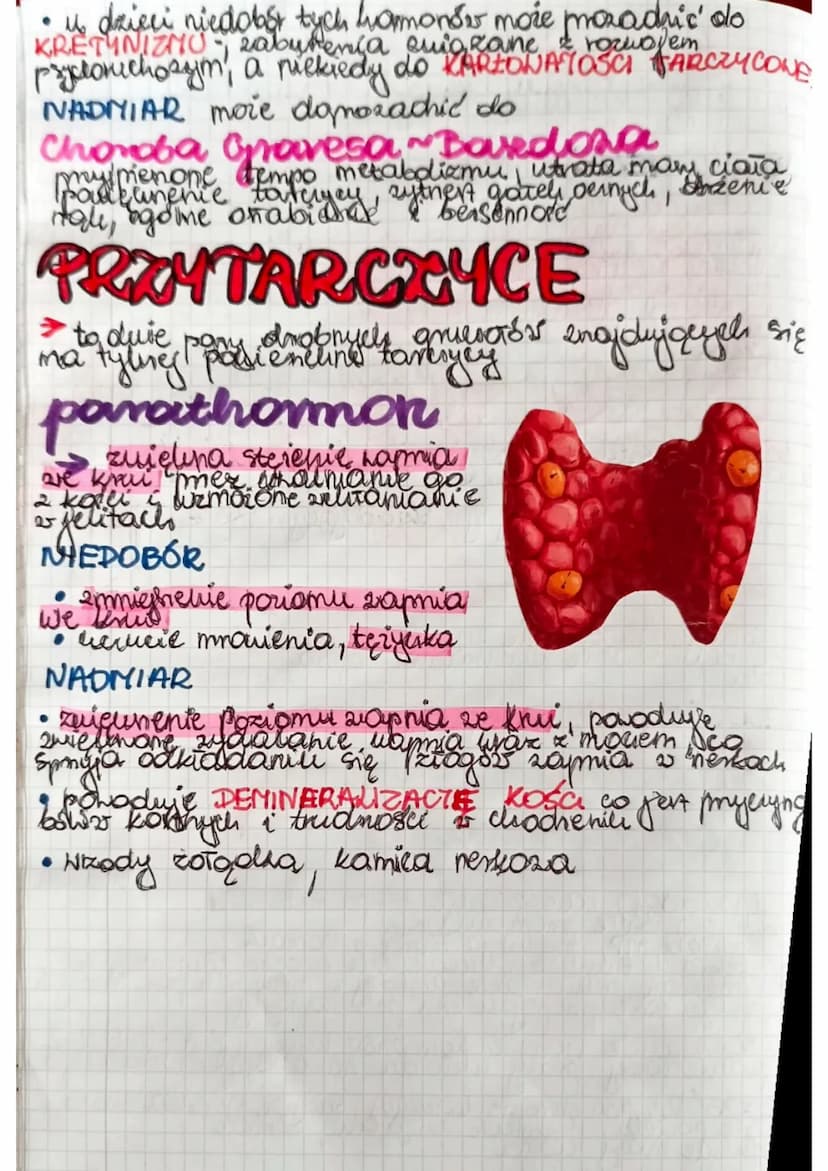 • u dzieci niedobór tych hormonów może prowadzić do
KRETYNIZMU -, zaburzenia związane z rozwojem
psychoruchowym, a niekiedy do KARŁOWATOŚCI TARCZYCOWE
NADMIAR może doprowadzić do
Choroba Gravesa ~ Basedowa
przyspieszone tempo metabolizmu, utrata masy ciała
powiększenie tarczycy, wytrzeszcz gałek ocznych, drżenie
rąk, ogólne osłabienie i bezsenność
PRZYTARCZYCE
→ to dwie pary drobnych gruczołów znajdujących się
na tylnej powierzchni tarczycy
parathormon
→ zwiększa stężenie wapnia
we krwi przez uwalnianie go
z kości i wzmożone wchłanianie
w jelitach
NIEDOBÓR
• zmniejszenie poziomu wapnia
we krwi
• uczucie mrowienia, tężyczka
NADMIAR
• zwiększenie poziomu wapnia we krwi, powoduje
zwiększone wydalanie wapnia wraz z moczem co
sprzyja odkładaniu się złogów wapnia w nerkach
• powoduje DEMINERALIZACJĘ KOŚCI co jest przyczyną
bólów kostnych i trudności w chodzeniu
• wrzody żołądka, kamica nerkowa